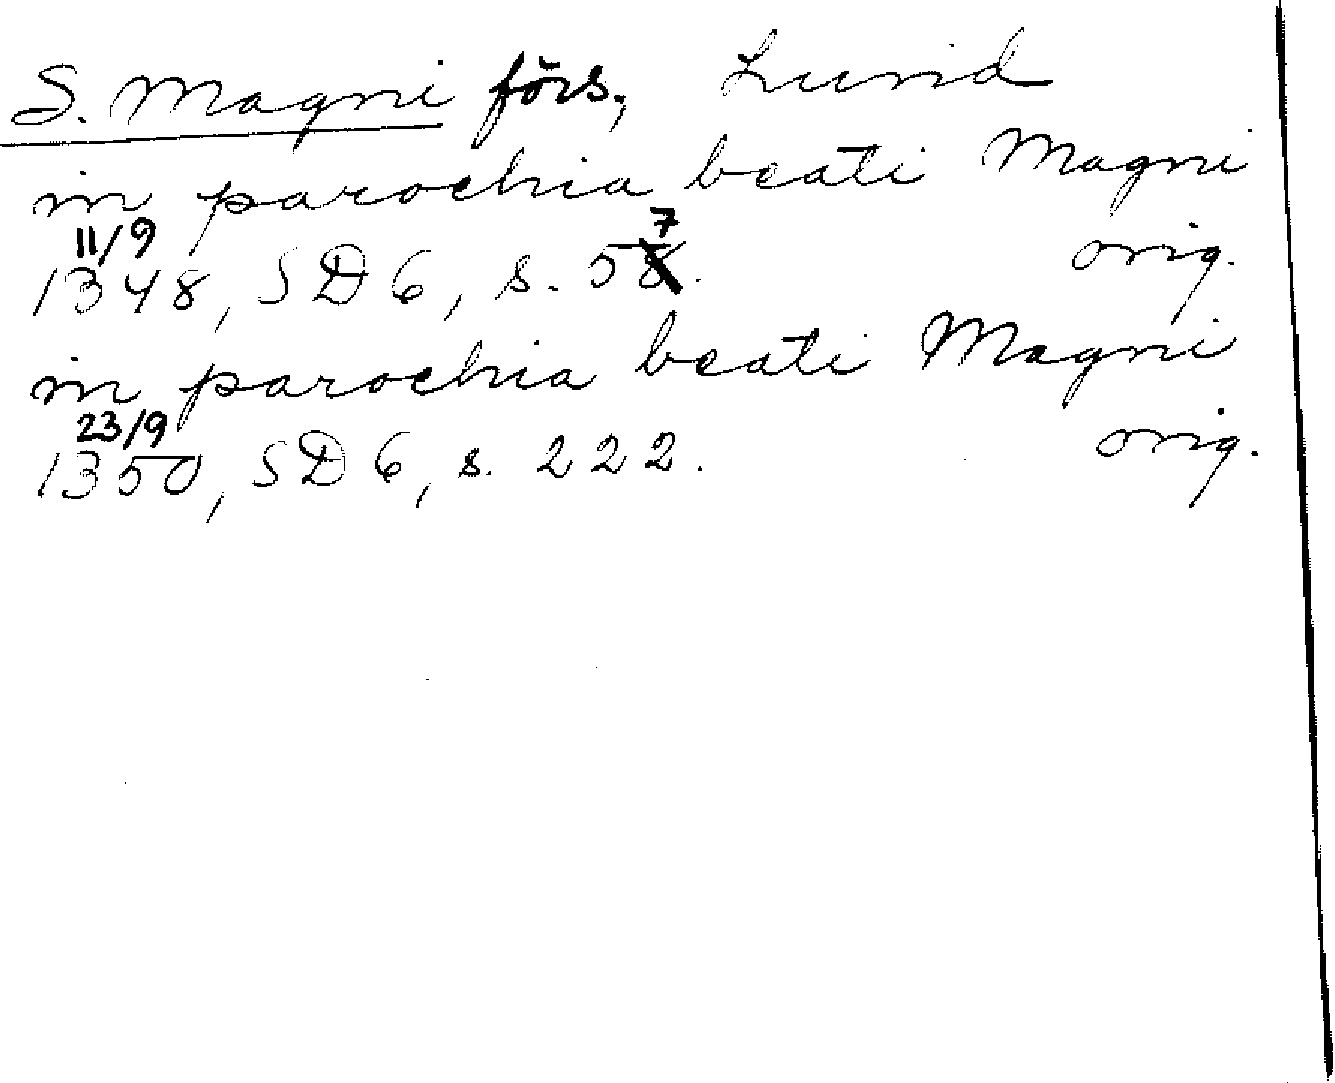 S. Magni förs., Lund
in parochia beati Magni
11/9 7
1348, SD 6, s. 58. orig.
in parochia beati Magni
23/9
1350, SD 6, s. 222. orig.